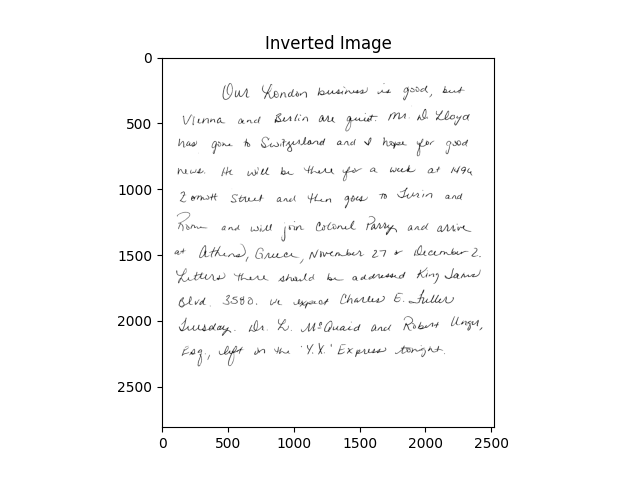 Inverted Image
0
500
1000
1500
2000
2500
Our London business is good, but
Vienna and Berlin are quiet. Mr. D. Lloyd
has gone to Switzerland and I hope for good
news. He will be there for a week at 1496
Zermott Street and then goes to Turin and
Rome and will join Colonel Parry and arrive
at Athens, Greece, November 27 or December 2.
Letters there should be addressed King James
Blvd. 3580. We expect Charles E. Fuller
Tuesday. Dr. L. McQuaid and Robert Unger,
Esq., left on the 'Y.X.' Express tonight.
0 500 1000 1500 2000 2500